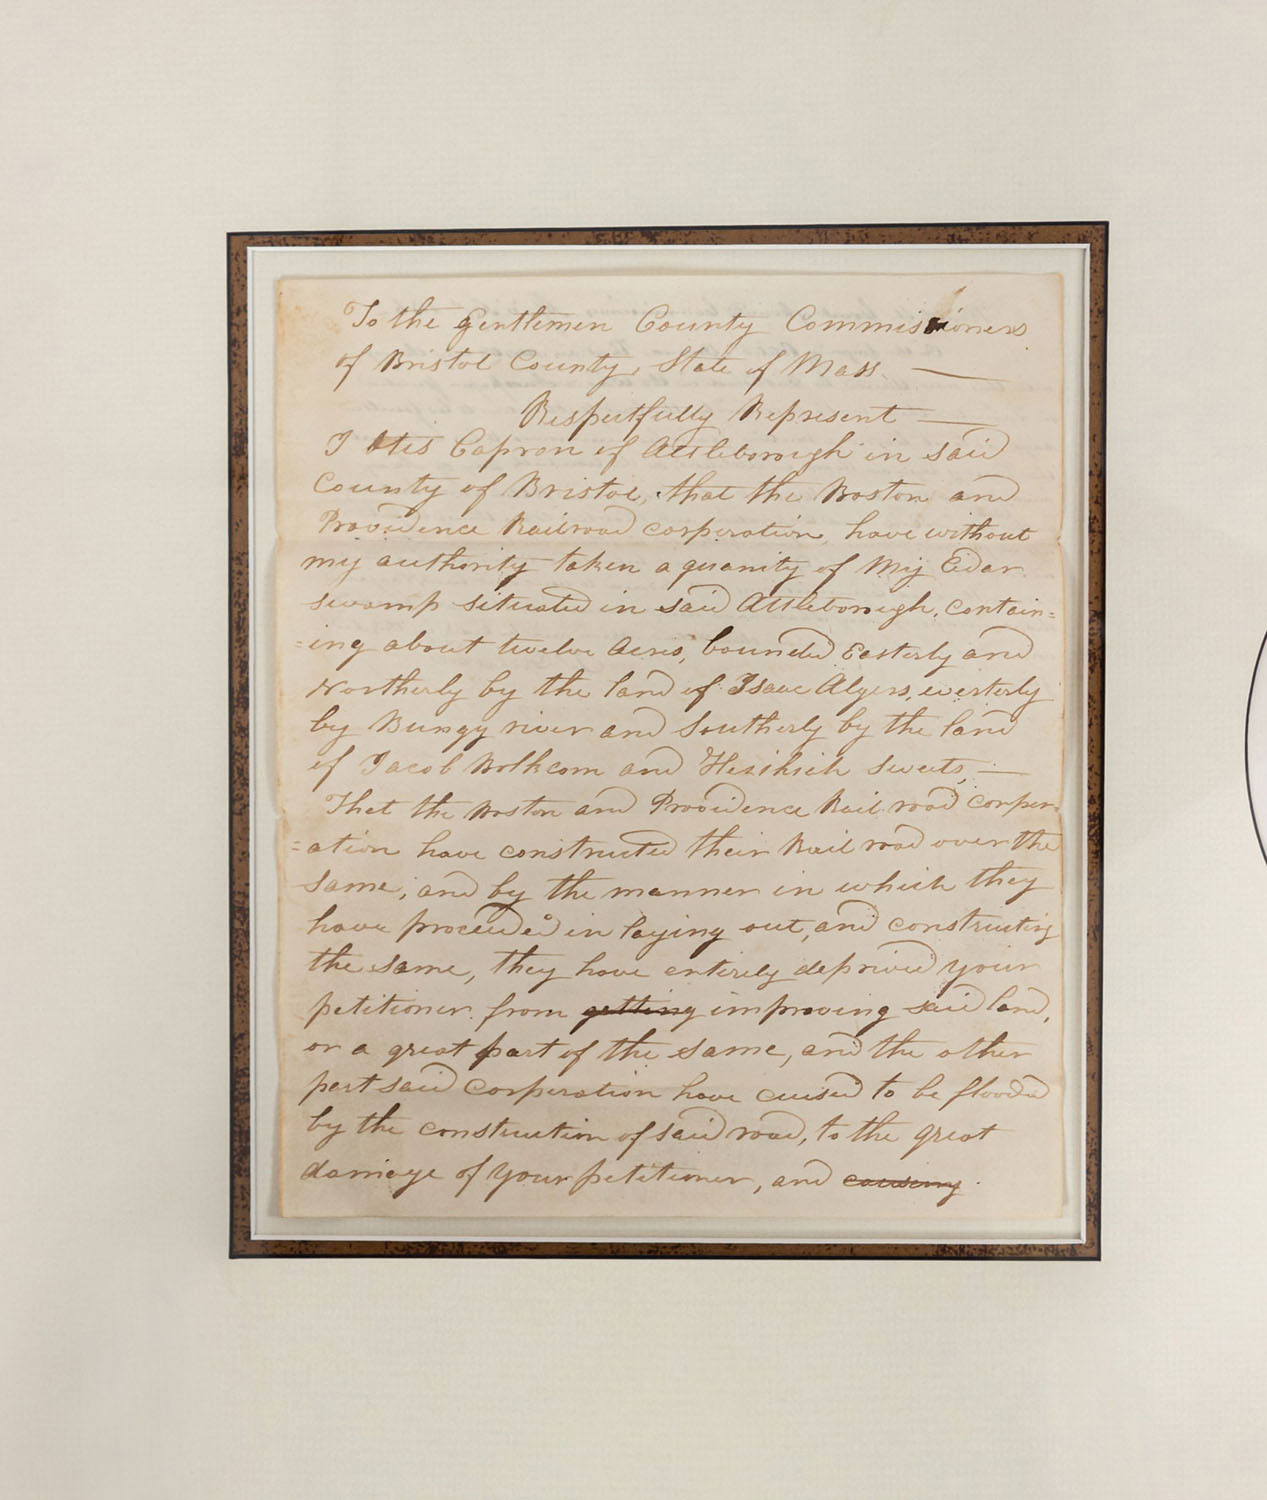 To the Gentlemen County Commissioners
of Bristol County, State of Mass. —
Respectfully Represent —
I Otis Capron of Attleborough in said
County of Bristol, that the Boston and
Providence Railroad corporation, have without
my authority taken a quanity of My Cedar
swamp situated in said Attleborough, contain=
=ing about twelve Acres, bounded Easterly and
Northerly by the land of Isaac Algers, westerly
by Bungy river and Southerly by the land
of Jacob Bolkcom and Hezikiah Sweets, —
That the Boston and Providence Rail road corper
=ation have constructed their Rail road over the
same, and by the manner in which they
have proceeded in laying out, and constructing
the same, they have entirely deprived your
petitioner from getting improving said land,
or a great part of the same, and the other
part said Corporation have caused to be flooded
by the construction of said road, to the great
damage of your petitioner, and causing